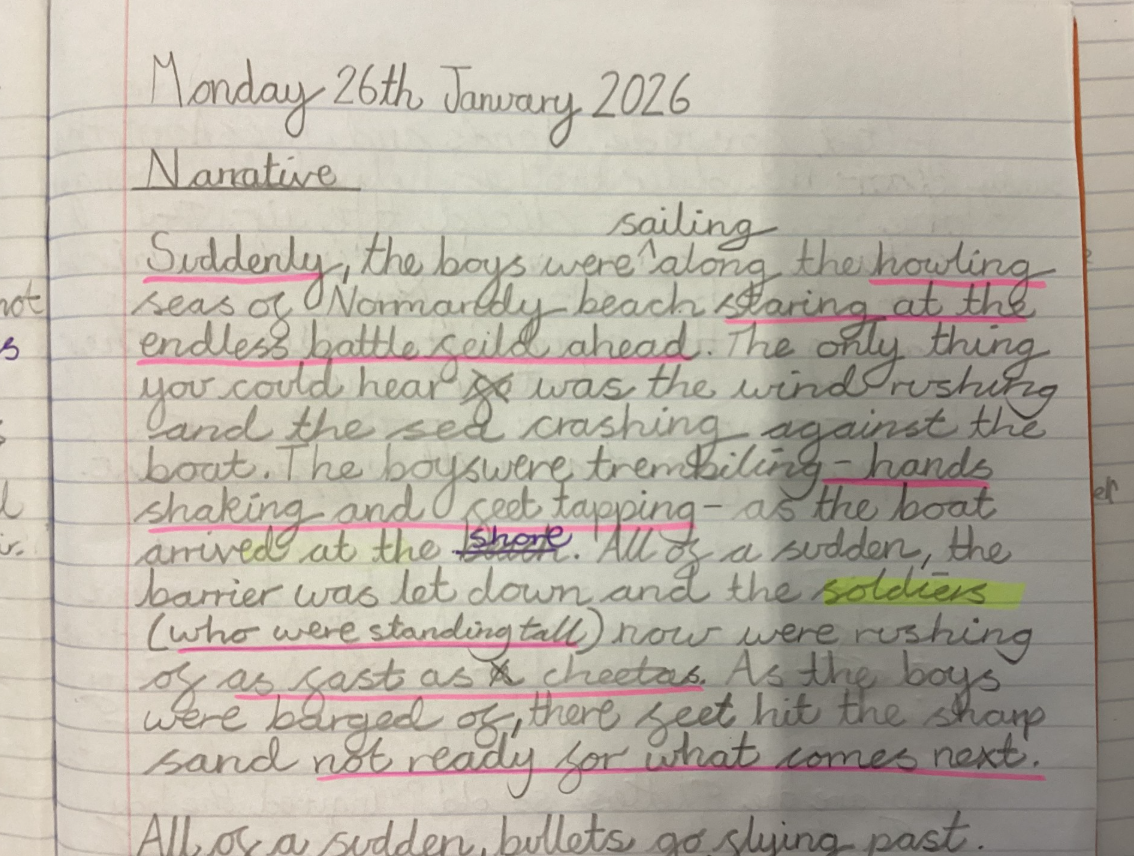 Monday 26th January 2026
Narrative
sailing
Suddenly, the boys were ^ along the howling
seas of Normandy beach staring at the
endless battle feild ahead. The only thing
you could hear was the wind rushing
and the sea crashing against the
boat. The boys were trembiling - hands
shaking and feet tapping - as the boat
arrived at the shore. All of a sudden, the
barrier was let down and the soldiers
(who were standing tall) now were rushing
of as fast as cheetas. As the boys
were barged of, there feet hit the sharp
sand not ready for what comes next.
All of a sudden, bullets go flying past.
not
s
er